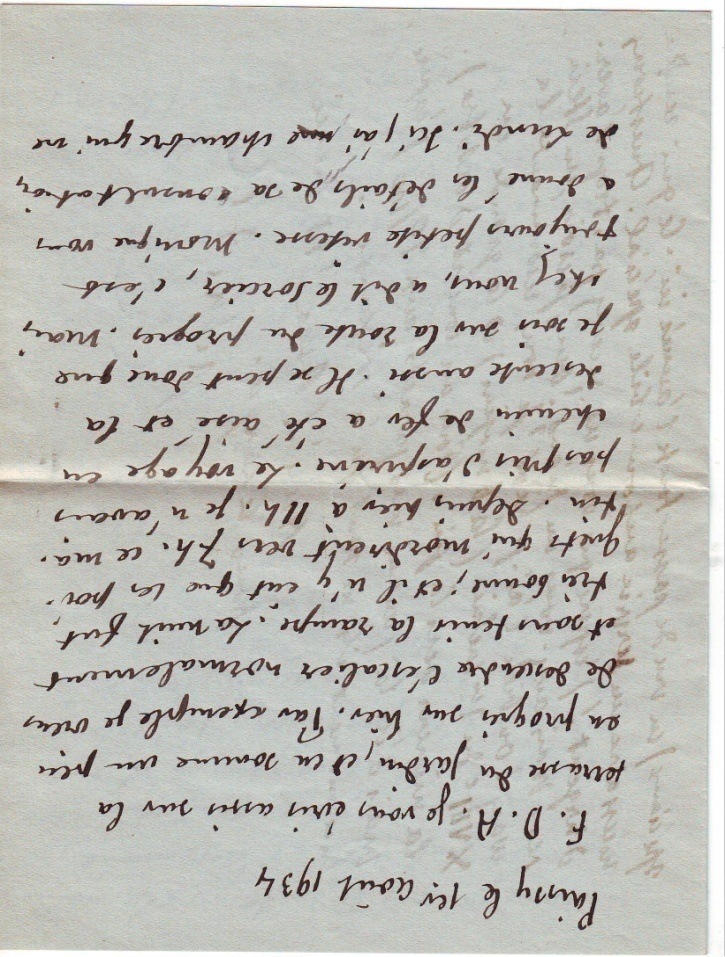 Paissy le 1er août 1934
F. D. A. je vous écris assis sur la
terrasse du jardin, et en somme un peu
en progrès sur hier. Par exemple je viens
de descendre l'escalier normalement
et sans tenir la rampe. La nuit fut
très bonne; et il n'y eut que les poi-
gnets qui mordirent vers 7 h. ce ma-
tin. Depuis hier à 11 h. je n'avais
pas pris d'aspirine. Le voyage en
chemin de fer a été aisé et la
descente aussi. Il se peut donc que
je sois sur la route du progrès. Mais
chez vous, a dit le sorcier, c'est
toujours petite vitesse. Monique vous
a donné les détails de sa consultation
de lundi. Ici j'ai une chambre qui ne